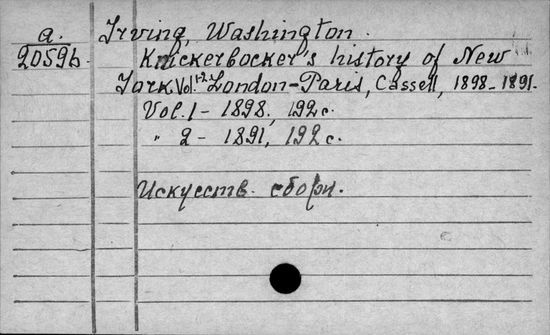 a. Irving, Washington.
20596. Knickerbocker's history of New
York. Vol. 1-2. London-Paris, Cassell, 1898-1891.
Vol. 1 - 1898, 192 c.
" 2 - 1891, 192 c.
Искусств. сборн.